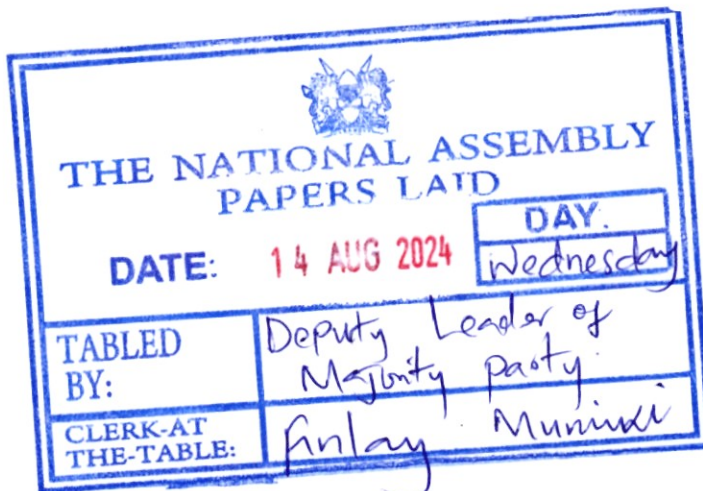 THE NATIONAL ASSEMBLY
PAPERS LAID
DATE: 14 AUG 2024
DAY.
Wednesday
TABLED BY:
Deputy Leader of
Majority party.
CLERK-AT THE-TABLE:
Finlay Muriuki